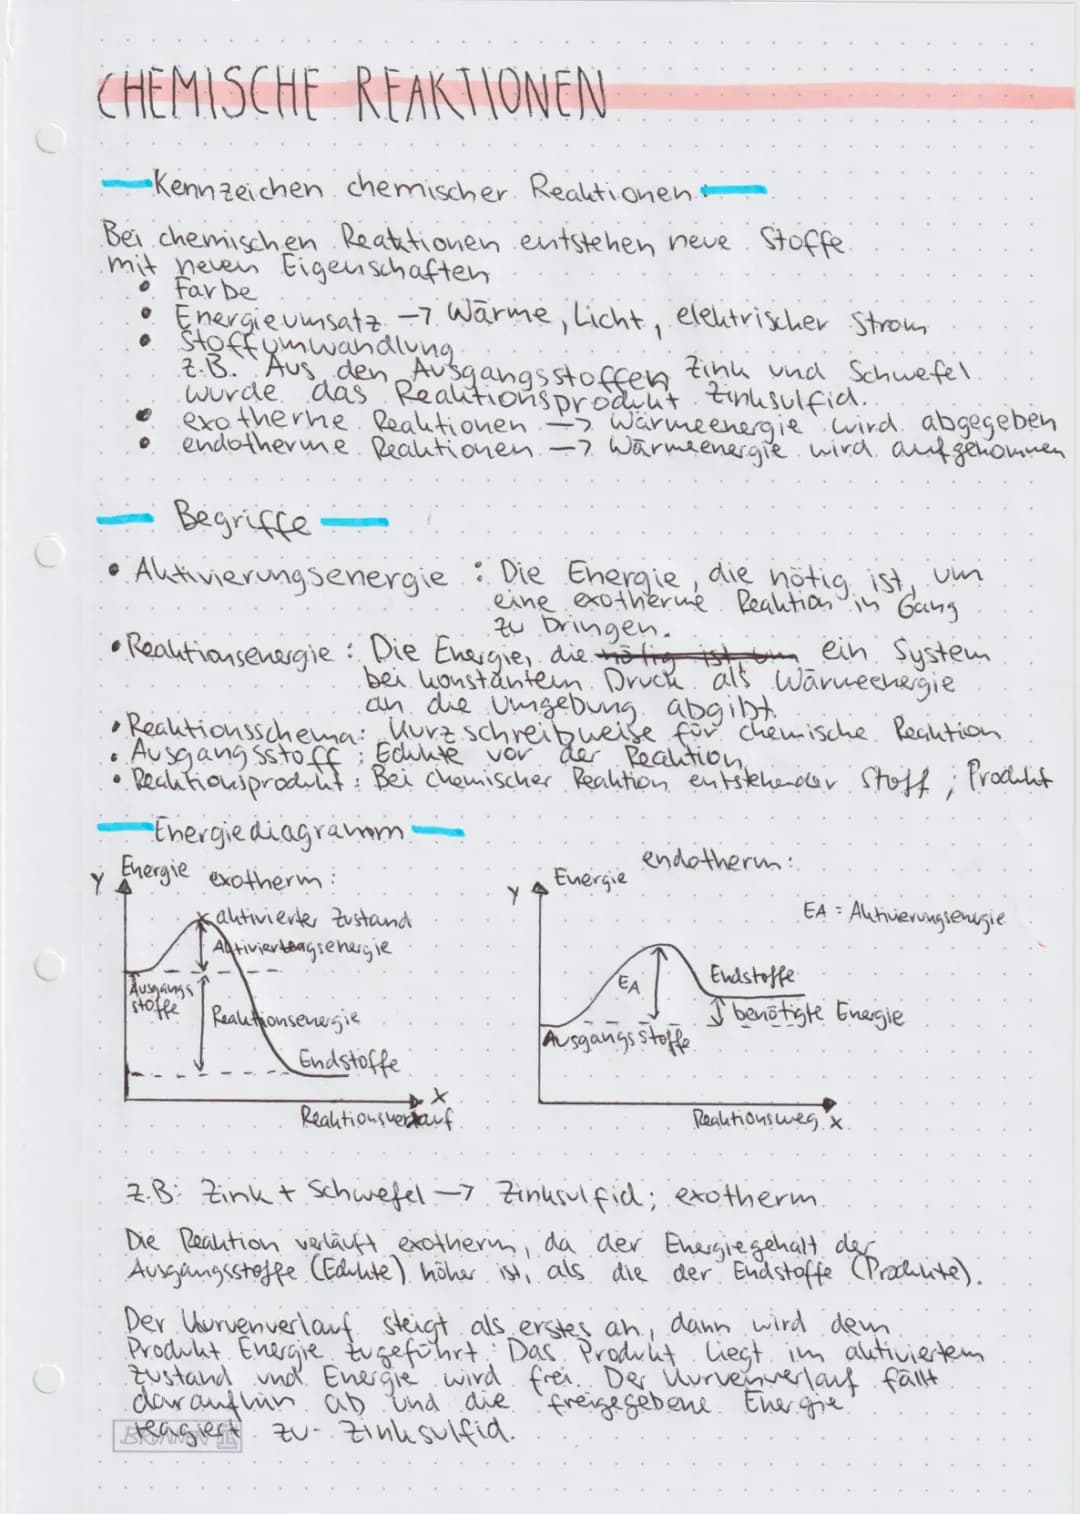 CHEMISCHE REAKTIONEN
Kennzeichen chemischer Reaktionen
Bei chemischen Reaktionen entstehen neue Stoffe
mit neuen Eigenschaften
• Farbe
• Energieumsatz → Wärme, Licht, elektrischer Strom
• Stoffumwandlung
z.B. Aus den Ausgangsstoffen Zink und Schwefel
wurde das Reaktionsprodukt Zinksulfid.
• exotherme Reaktionen → Wärmeenergie wird abgegeben
• endotherme Reaktionen → Wärmeenergie wird aufgenommen
Begriffe
• Aktivierungsenergie : Die Energie, die nötig ist, um
eine exotherme Reaktion in Gang
zu bringen.
• Reaktionsenergie : Die Energie, die nötig ist, um ein System
bei konstantem Druck als Wärmeenergie
an die Umgebung abgibt.
• Reaktionsschema: Kurzschreibweise für chemische Reaktion
• Ausgangsstoff : Edukte vor der Reaktion
• Reaktionsprodukt : Bei chemischer Reaktion entstehender Stoff ; Produkt
Energiediagramm
Y Energie exotherm:
aktivierter Zustand
Aktivierungsenergie
Ausgangs
stoffe
Reaktionsenergie
Endstoffe
X
Reaktionsverlauf
Y Energie endotherm:
EA = Aktivierungsenergie
EA
Endstoffe
benötigte Energie
Ausgangsstoffe
Reaktionsweg X
z.B: Zink + Schwefel → Zinksulfid; exotherm
Die Reaktion verläuft exotherm, da der Energiegehalt der
Ausgangsstoffe (Edukte) höher ist, als die der Endstoffe (Produkte).
Der Kurvenverlauf steigt als erstes an, dann wird dem
Produkt Energie zugeführt. Das Produkt liegt im aktiviertem
Zustand und Energie wird frei. Der Kurvenverlauf fällt
daraufhin ab und die freigegebene Energie
reagiert zu Zinksulfid.
BRUNNEN